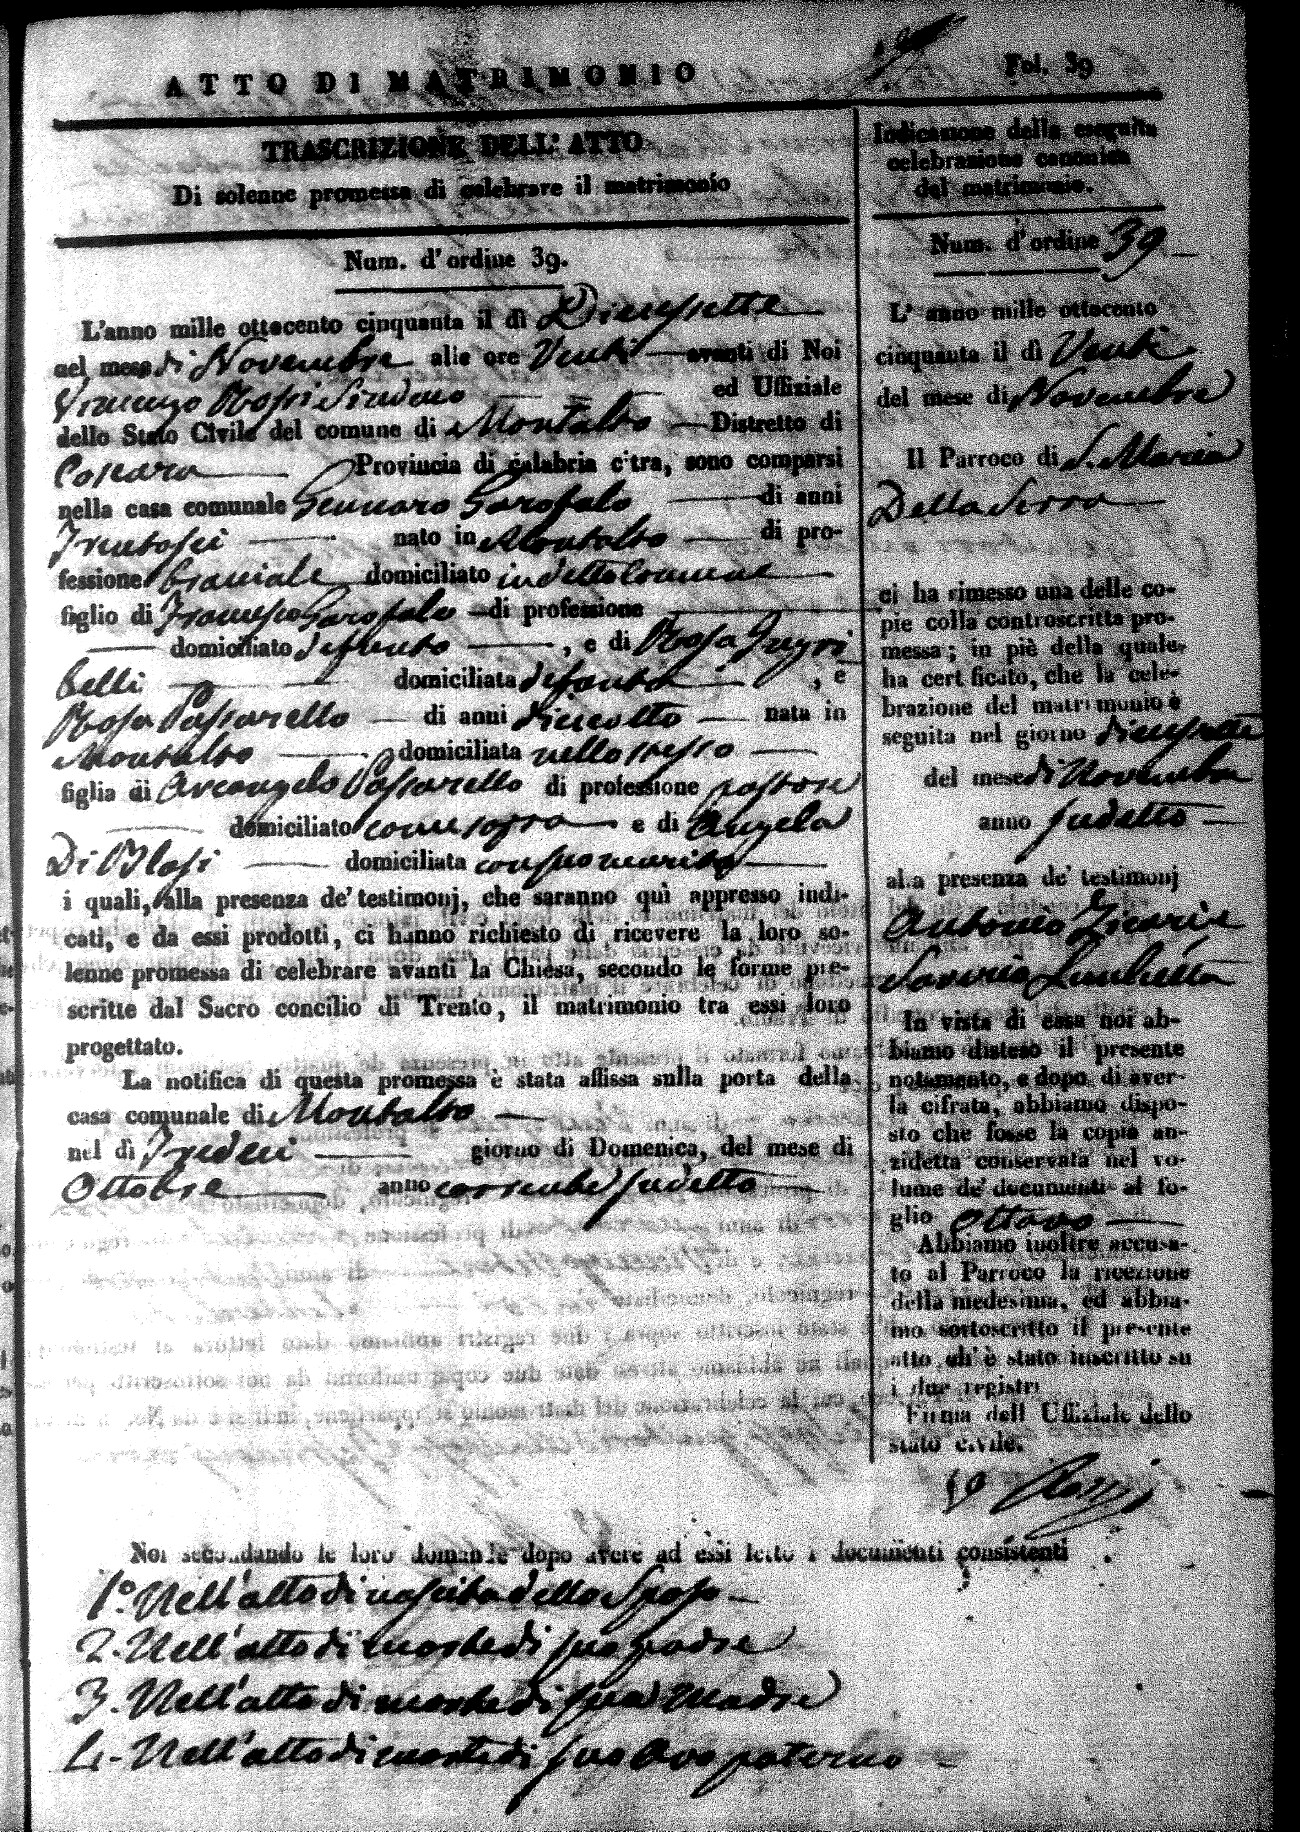 ATTO DI MATRIMONIO
Fol. 39
TRASCRIZIONE DELL' ATTO
Di solenne promessa di celebrare il matrimonio
Num. d'ordine 39.
L'anno mille ottocento cinquanta il dì Diciessette
nel mese di Novembre alle ore Venti avanti di Noi
Vincenzo Rossi Sindaco ed Uffiziale
dello Stato Civile del comune di Montalto Distretto di
Cosenza Provincia di calabria citra, sono comparsi
nella casa comunale Gennaro Garofalo di anni
Trentasei nato in Montalto di pro-
fessione Braciale domiciliato in detto Comune
figlio di Francesco Garofalo di professione
domiciliato defunto , e di Rosa
belli domiciliata defunta , e
Rosa Passarello di anni dieciotto nata in
Montalto domiciliata nello stesso
figlia di Arcangelo Passarello di professione pastore
domiciliato come sopra e di Angela
Di Blasi domiciliata con suo marito
i quali, alla presenza de' testimonj, che saranno quì appresso indi-
cati, e da essi prodotti, ci hanno richiesto di ricevere la loro so-
lenne promessa di celebrare avanti la Chiesa, secondo le forme pre-
scritte dal Sacro concilio di Trento, il matrimonio tra essi loro
progettato.
La notifica di questa promessa è stata affissa sulla porta della
casa comunale di Montalto
nel dì Tredeci giorno di Domenica, del mese di
Ottobre anno corrente sudetto
Indicazione della eseguita
celebrazione canonica
del matrimonio.
Num. d'ordine 39
L' anno mille ottocento
cinquanta il dì Venti
del mese di Novembre
Il Parroco di S. Maria
Della Serra
ci ha rimesso una delle co-
pie colla controscritta pro-
messa; in piè della quale
ha certificato, che la cele-
brazione del matrimonio è
seguita nel giorno diciessette
del mese di Novembre
anno sudetto
alla presenza de' testimonj
Antonio Zicaria
Saverio
In vista di essa noi ab-
biamo disteso il presente
notamento, e dopo di aver-
la cifrata, abbiamo dispo-
sto che fosse la copia an-
zidetta conservata nel vo-
lume de' documenti al fo-
glio ottavo
Abbiamo inoltre accusa-
to al Parroco la ricezione
della medesima, ed abbia-
mo sottoscritto il presente
atto ch' è stato inscritto su
i due registri
Firma dell Uffiziale dello
stato civile.
Rossi
Noi secondando le loro domande dopo avere ad essi letto i documenti consistenti
1.º Nell'atto di nascita dello Sposo
2. Nell'atto di morte di suo padre
3. Nell'atto di morte di sua Madre
4. Nell'atto di morte di suo Avo paterno